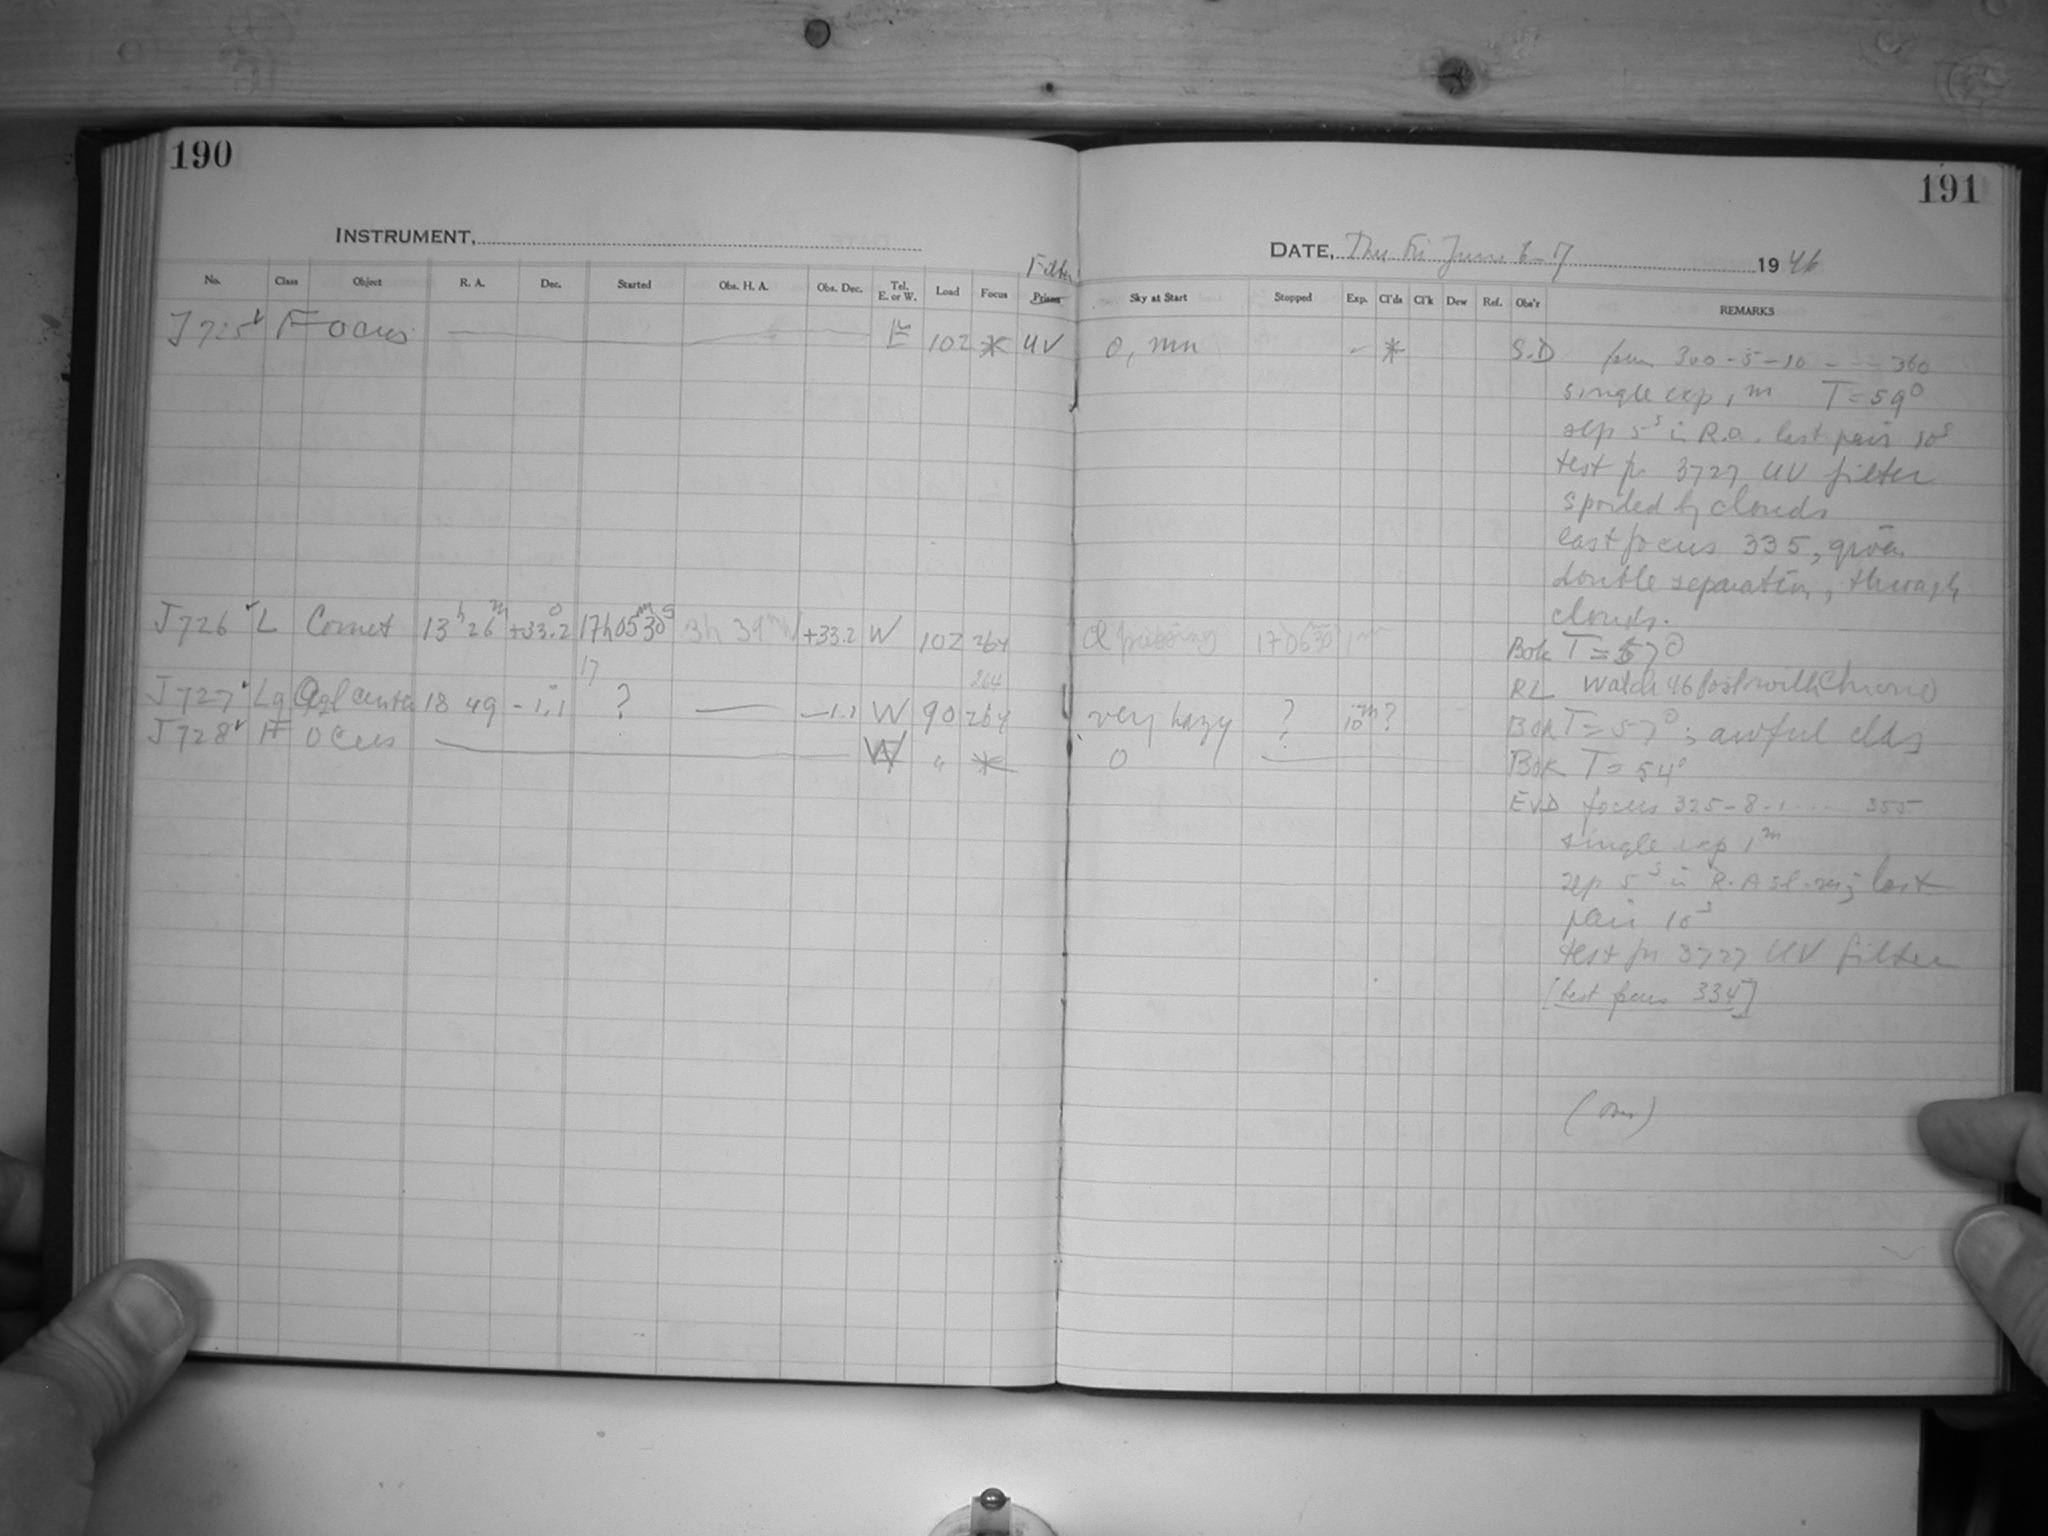 190
191
INSTRUMENT,
DATE, Thu Fri June 6-7 1946
Filter
No. Class Object R. A. Dec. Started Obs. H. A. Obs. Dec. Tel. E. or W. Load Focus Prism Sky at Start Stopped Exp. Cl'ds Cl'k Dew Ref. Obs'r REMARKS
J725 Focus E 102 * UV 0, mn - * S.D 300-5-10 - - - 360
single exp 1m T=59°
sep 5s in R.A. last pair 10s
test for 3727 UV filter
spoiled by clouds
last focus 335, given
double separation, through
clouds.
J726 L Comet 13h 26m +33.2° 17h05m30s 3h 39m W +33.2 W 102 264 passing 170630 1m Bok T=57°
17 264 RL Watch 46 fast with Chrono
J727 Lg Aql 18 49 -1.1 ? -1.1 W 90 264 very hazy ? 10m? Bok T=57°; awful clds
J728 Focus W " * 0 Bok T=54°
EvD focus 325-8-1 ---- 355
single exp 1m
sep 5s in R.A last
pair 10s
test for 3727 UV filter
334]